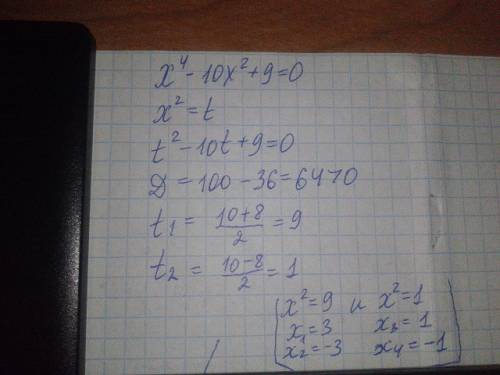 x⁴-10x²+9=0
x²=t
t²-10t+9=0
D=100-36=64>0
t₁ = (10+8)/2 = 9
t₂ = (10-8)/2 = 1
x²=9 и x²=1
x₁=3 x₃=1
x₂=-3 x₄=-1